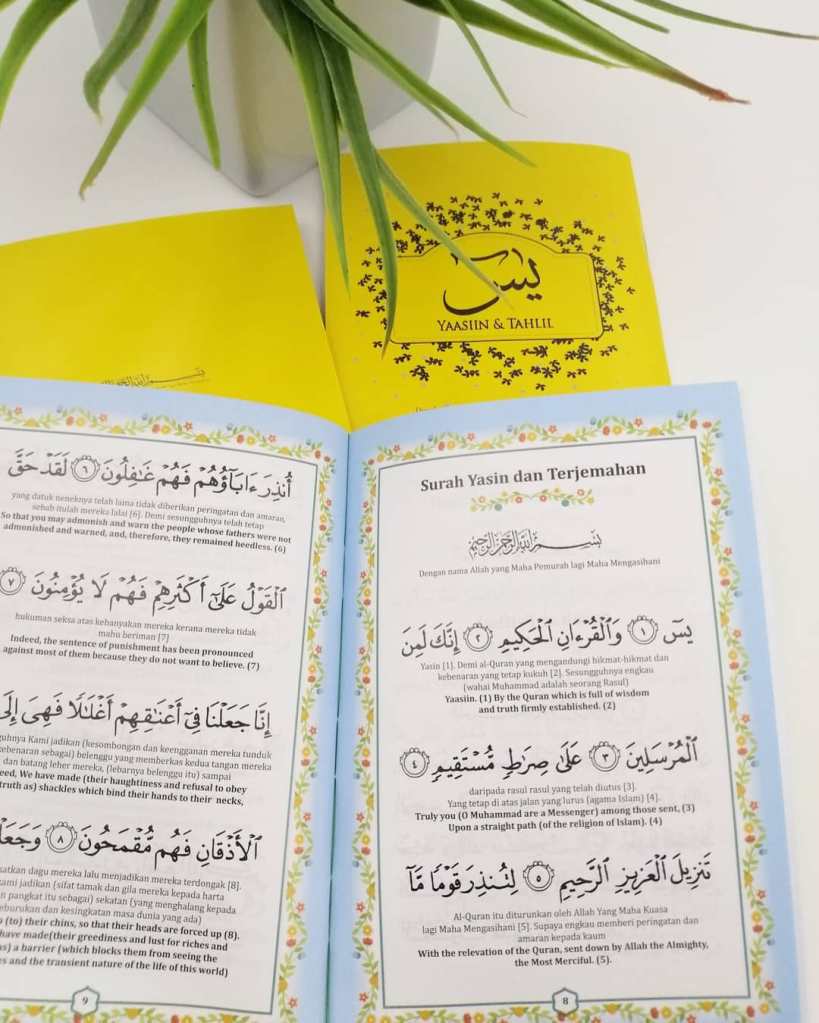 يس
YAASIIN & TAHLIL
Surah Yasin dan Terjemahan
بِسْمِ اللَّهِ الرَّحْمَٰنِ الرَّحِيمِ
Dengan nama Allah yang Maha Pemurah lagi Maha Mengasihani
يسٓ ١ وَٱلْقُرْءَانِ ٱلْحَكِيمِ ٢ إِنَّكَ لَمِنَ
Yasin [1]. Demi al-Quran yang mengandungi hikmat-hikmat dan
kebenaran yang tetap kukuh [2]. Sesungguhnya engkau
(wahai Muhammad adalah seorang Rasul)
Yaasiin. (1) By the Quran which is full of wisdom
and truth firmly established. (2)
ٱلْمُرْسَلِينَ ٣ عَلَىٰ صِرَٰطٍ مُّسْتَقِيمٍ ٤
daripada rasul rasul yang telah diutus [3].
Yang tetap di atas jalan yang lurus (agama Islam) [4].
Truly you (O Muhammad are a Messenger) among those sent, (3)
Upon a straight path (of the religion of Islam). (4)
تَنزِيلَ ٱلْعَزِيزِ ٱلرَّحِيمِ ٥ لِتُنذِرَ قَوْمًا مَّآ
Al-Quran itu diturunkan oleh Allah Yang Maha Kuasa
lagi Maha Mengasihani [5]. Supaya engkau memberi peringatan dan
amaran kepada kaum
With the relevation of the Quran, sent down by Allah the Almighty,
the Most Merciful. (5).
8
أُنذِرَ ءَابَآؤُهُمْ فَهُمْ غَٰفِلُونَ ٦ لَقَدْ حَقَّ
yang datuk neneknya telah lama tidak diberikan peringatan dan amaran,
sebab itulah mereka lalai [6]. Demi sesungguhnya telah tetap
So that you may admonish and warn the people whose fathers were not
admonished and warned, and, therefore, they remained heedless. (6)
ٱلْقَوْلُ عَلَىٰٓ أَكْثَرِهِمْ فَهُمْ لَا يُؤْمِنُونَ ٧
hukuman seksa atas kebanyakan mereka kerana mereka tidak
mahu beriman [7]
Indeed, the sentence of punishment has been pronounced
against most of them because they do not want to believe. (7)
إِنَّا جَعَلْنَا فِىٓ أَعْنَٰقِهِمْ أَغْلَٰلًا فَهِىَ إِلَى
Kami jadikan (kesombongan dan keengganan mereka tunduk
kebenaran sebagai) belenggu yang memberkas kedua tangan mereka
dan batang leher mereka, (lebarnya belenggu itu) sampai
We have made (their haughtiness and refusal to obey
truth as) shackles which bind their hands to their necks,
ٱلْأَذْقَانِ فَهُم مُّقْمَحُونَ ٨ وَجَعَلْنَا
dagu mereka lalu menjadikan mereka terdongak [8].
jadikan (sifat tamak dan gila mereka kepada harta
pangkat itu sebagai) sekatan (yang menghalang kepada
keburukan dan kesingkatan masa dunia yang ada)
(to) their chins, so that their heads are forced up (8).
have made(their greediness and lust for riches and
a barrier (which blocks them from seeing the
and the transient nature of the life of this world)
9